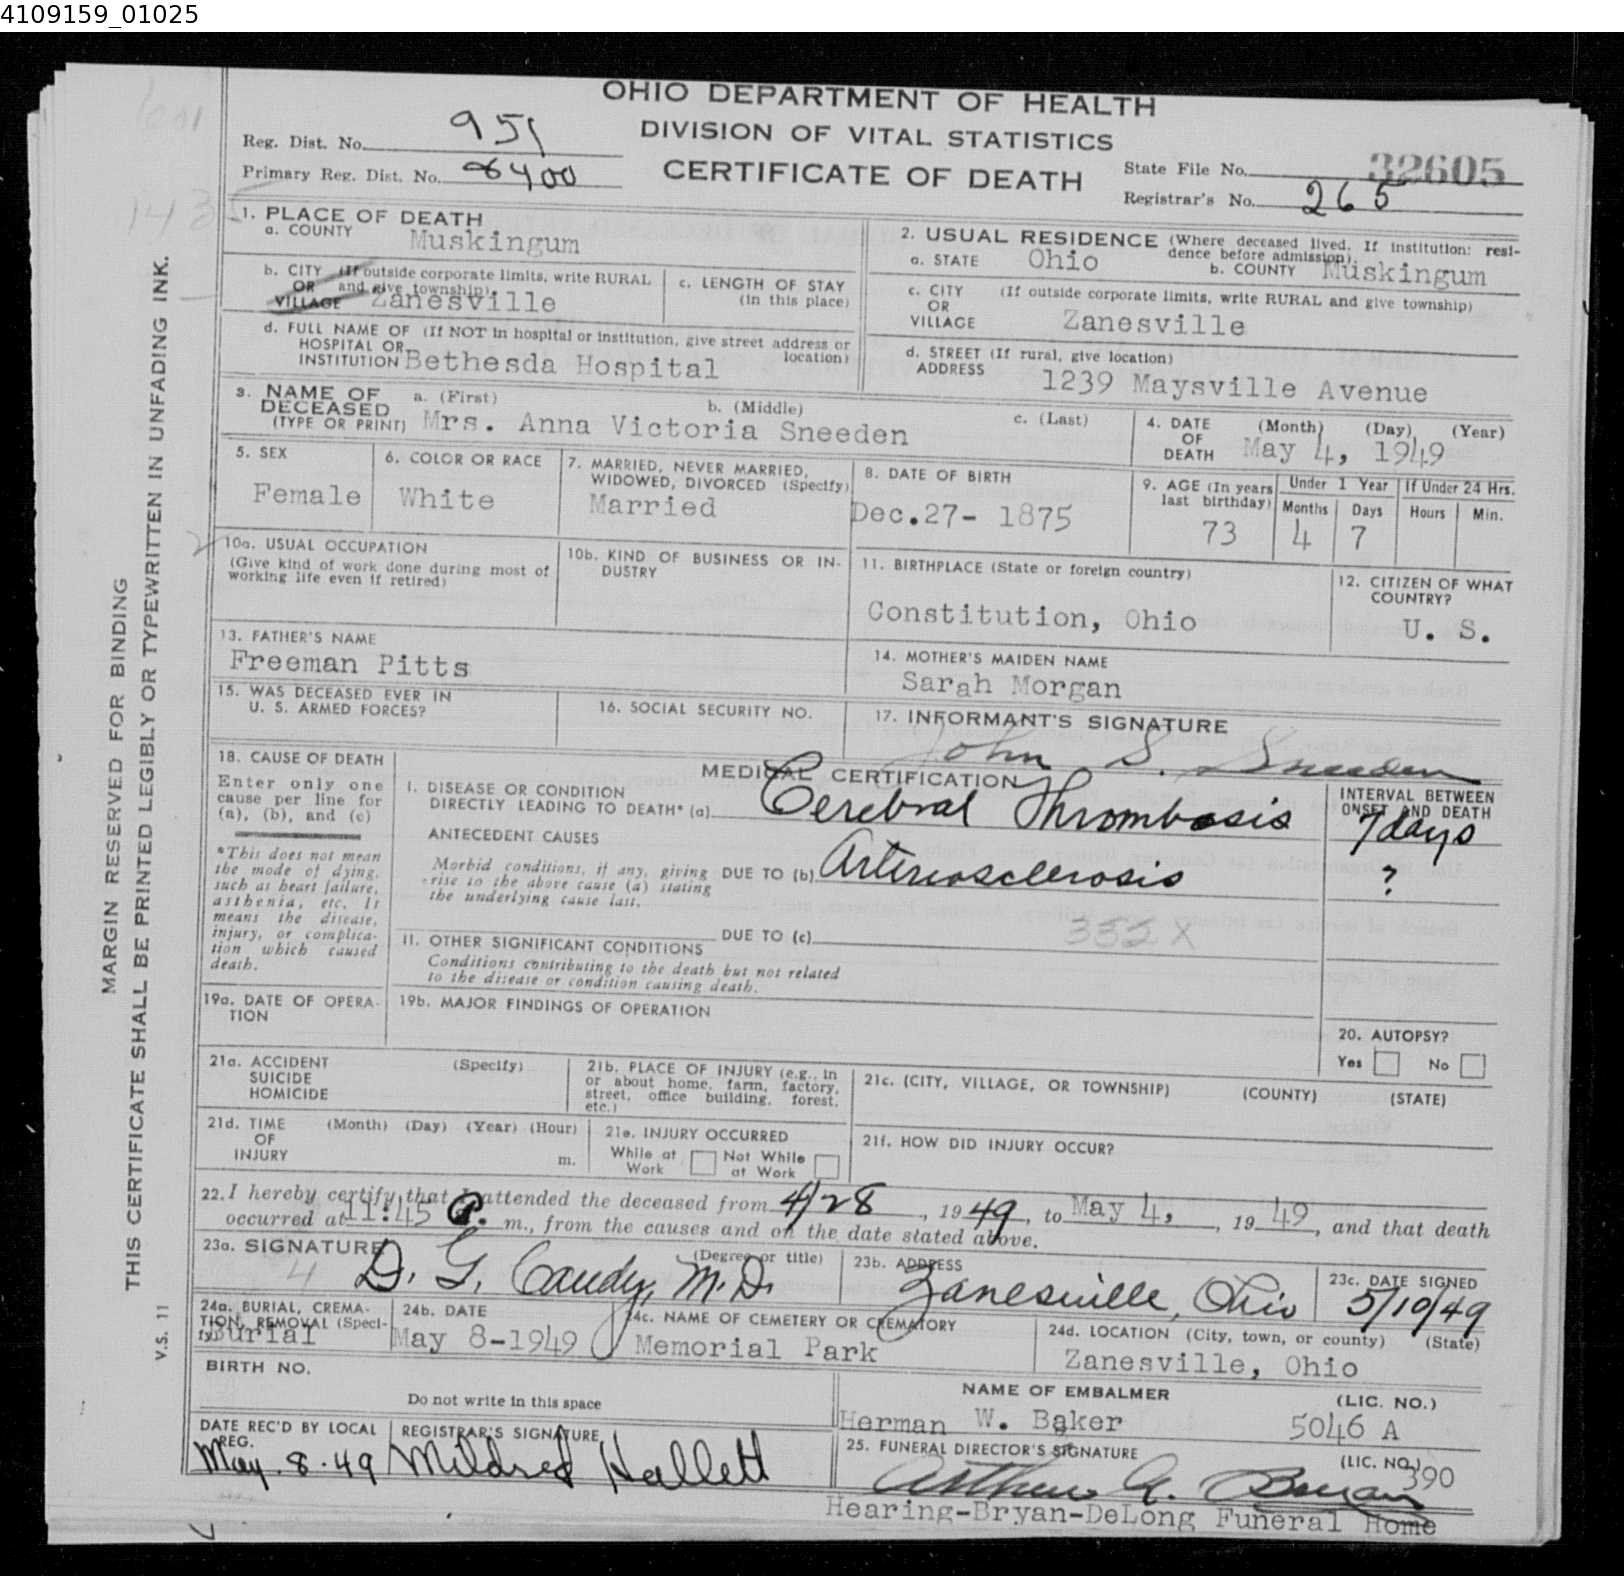 4109159_01025
OHIO DEPARTMENT OF HEALTH
DIVISION OF VITAL STATISTICS
CERTIFICATE OF DEATH
Reg. Dist. No. 951
Primary Reg. Dist. No. 8400
State File No. 32605
Registrar's No. 265
MARGIN RESERVED FOR BINDING
THIS CERTIFICATE SHALL BE PRINTED LEGIBLY OR TYPEWRITTEN IN UNFADING INK.
V.S. 11
1. PLACE OF DEATH
a. COUNTY Muskingum
b. CITY (If outside corporate limits, write RURAL
OR and give township)
VILLAGE Zanesville
c. LENGTH OF STAY
(in this place)
d. FULL NAME OF (If NOT in hospital or institution, give street address or
HOSPITAL OR location)
INSTITUTION Bethesda Hospital
2. USUAL RESIDENCE (Where deceased lived. If institution: resi-
dence before admission).
a. STATE Ohio b. COUNTY Muskingum
c. CITY (If outside corporate limits, write RURAL and give township)
OR
VILLAGE Zanesville
d. STREET (If rural, give location)
ADDRESS 1239 Maysville Avenue
3. NAME OF DECEASED a. (First) b. (Middle) c. (Last)
(TYPE OR PRINT) Mrs. Anna Victoria Sneeden
4. DATE OF DEATH (Month) (Day) (Year)
May 4, 1949
5. SEX
Female
6. COLOR OR RACE
White
7. MARRIED, NEVER MARRIED,
WIDOWED, DIVORCED (Specify)
Married
8. DATE OF BIRTH
Dec.27- 1875
9. AGE (In years last birthday)
73
Under 1 Year
Months Days
4 7
If Under 24 Hrs.
Hours Min.
10a. USUAL OCCUPATION
(Give kind of work done during most of
working life even if retired)
10b. KIND OF BUSINESS OR IN-
DUSTRY
11. BIRTHPLACE (State or foreign country)
Constitution, Ohio
12. CITIZEN OF WHAT
COUNTRY?
U. S.
13. FATHER'S NAME
Freeman Pitts
14. MOTHER'S MAIDEN NAME
Sarah Morgan
15. WAS DECEASED EVER IN
U. S. ARMED FORCES?
16. SOCIAL SECURITY NO.
17. INFORMANT'S SIGNATURE
John S. Sneeden
18. CAUSE OF DEATH
Enter only one
cause per line for
(a), (b), and (c)
*This does not mean
the mode of dying,
such as heart failure,
asthenia, etc. It
means the disease,
injury, or complica-
tion which caused
death.
MEDICAL CERTIFICATION
I. DISEASE OR CONDITION
DIRECTLY LEADING TO DEATH* (a) Cerebral Thrombosis
ANTECEDENT CAUSES
Morbid conditions, if any, giving
rise to the above cause (a) stating
the underlying cause last.
DUE TO (b) Arteriosclerosis
DUE TO (c)
332 X
INTERVAL BETWEEN
ONSET AND DEATH
7 days
?
II. OTHER SIGNIFICANT CONDITIONS
Conditions contributing to the death but not related
to the disease or condition causing death.
19a. DATE OF OPERA-
TION
19b. MAJOR FINDINGS OF OPERATION
20. AUTOPSY?
Yes No
21a. ACCIDENT (Specify)
SUICIDE
HOMICIDE
21b. PLACE OF INJURY (e.g., in
or about home, farm, factory,
street, office building, forest,
etc.)
21c. (CITY, VILLAGE, OR TOWNSHIP) (COUNTY) (STATE)
21d. TIME (Month) (Day) (Year) (Hour)
OF
INJURY m.
21e. INJURY OCCURRED
While at Work Not While at Work
21f. HOW DID INJURY OCCUR?
22. I hereby certify that I attended the deceased from 4/28, 1949, to May 4, 1949, and that death
occurred at 11:45 P. m., from the causes and on the date stated above.
23a. SIGNATURE (Degree or title)
D. G. Caudy, M.D.
23b. ADDRESS
Zanesville, Ohio
23c. DATE SIGNED
5/10/49
24a. BURIAL, CREMA-
TION, REMOVAL (Speci-
fy) Burial
24b. DATE
May 8-1949
24c. NAME OF CEMETERY OR CREMATORY
Memorial Park
24d. LOCATION (City, town, or county) (State)
Zanesville, Ohio
BIRTH NO.
Do not write in this space
NAME OF EMBALMER (LIC. NO.)
Herman W. Baker 5046 A
DATE REC'D BY LOCAL
REG.
May. 8. 49
REGISTRAR'S SIGNATURE
Mildred Hallett
25. FUNERAL DIRECTOR'S SIGNATURE (LIC. NO.)
Arthur G. Bryan 390
Hearing-Bryan-DeLong Funeral Home